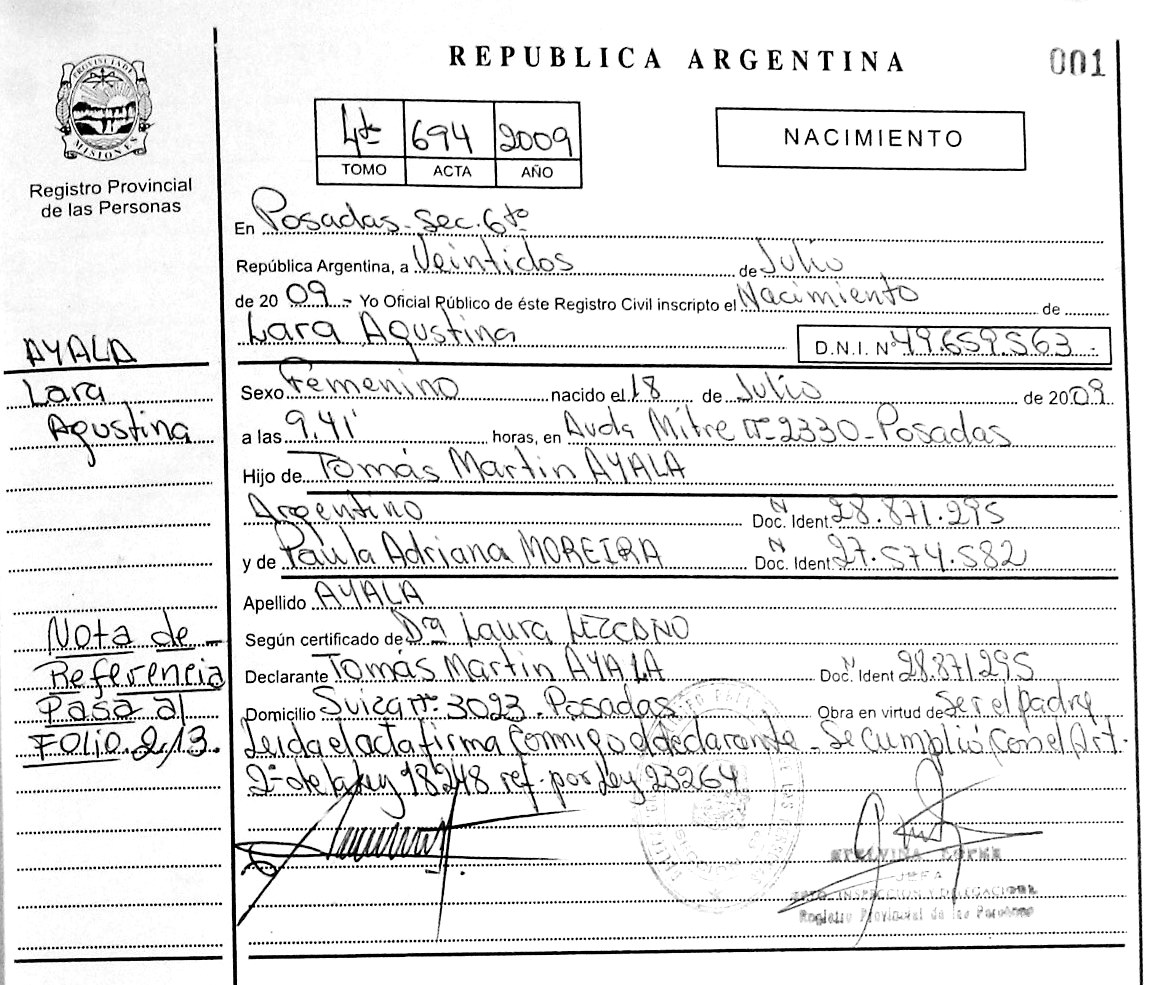 REPUBLICA ARGENTINA
001
PROVINCIA DE MISIONES
Registro Provincial
de las Personas
4to 694 2009
TOMO ACTA AÑO
NACIMIENTO
En Posadas. Sec. 6ta
República Argentina, a Veintidos de Julio
de 20 09.- Yo Oficial Público de éste Registro Civil inscripto el Nacimiento de
Lara Agustina D.N.I. Nº 49.659.563.-
Sexo Femenino nacido el 18 de Julio de 2009
a las 9,41' horas, en Avda Mitre nº 2330 - Posadas
Hijo de Tomás Martin AYALA
Argentino Doc. Ident. Nº 28.871.295
y de Paula Adriana MOREIRA Doc. Ident. Nº 27.574.582
Apellido AYALA
Según certificado de Dra Laura LEZCANO
Declarante Tomás Martin AYALA Doc. Ident Nº 28.871.295
Domicilio Suiza nº 3023. Posadas Obra en virtud de Ser el padre
Leida el acta firma conmigo el declarante - Se Cumplió con el Art.
2º de la ley 18248 ref. por ley 23264
JEFA
DPTO. INSPECCION Y DELEGACIONES
Registro Provincial de las Personas
AYALA
Lara
Agustina
Nota de -
Referencia
Pasa al
Folio 2/3.